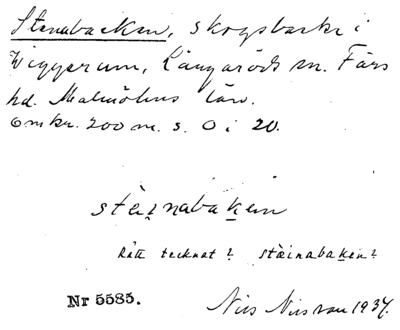 Stenabacken, skogsbacke i
Viggarum, Långaröds sn. Färs
hd. Malmöhus län.
Omkr. 200 m. s. O i 20.
stäinabaken
Rätt tecknat? stäinabaken?
Nr 5585.
Nils Nilsson 1934.